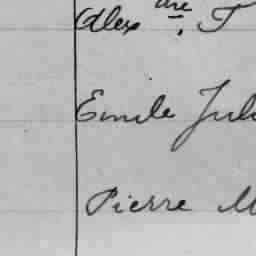 Alex dre. T
Emile Jul
Pierre M